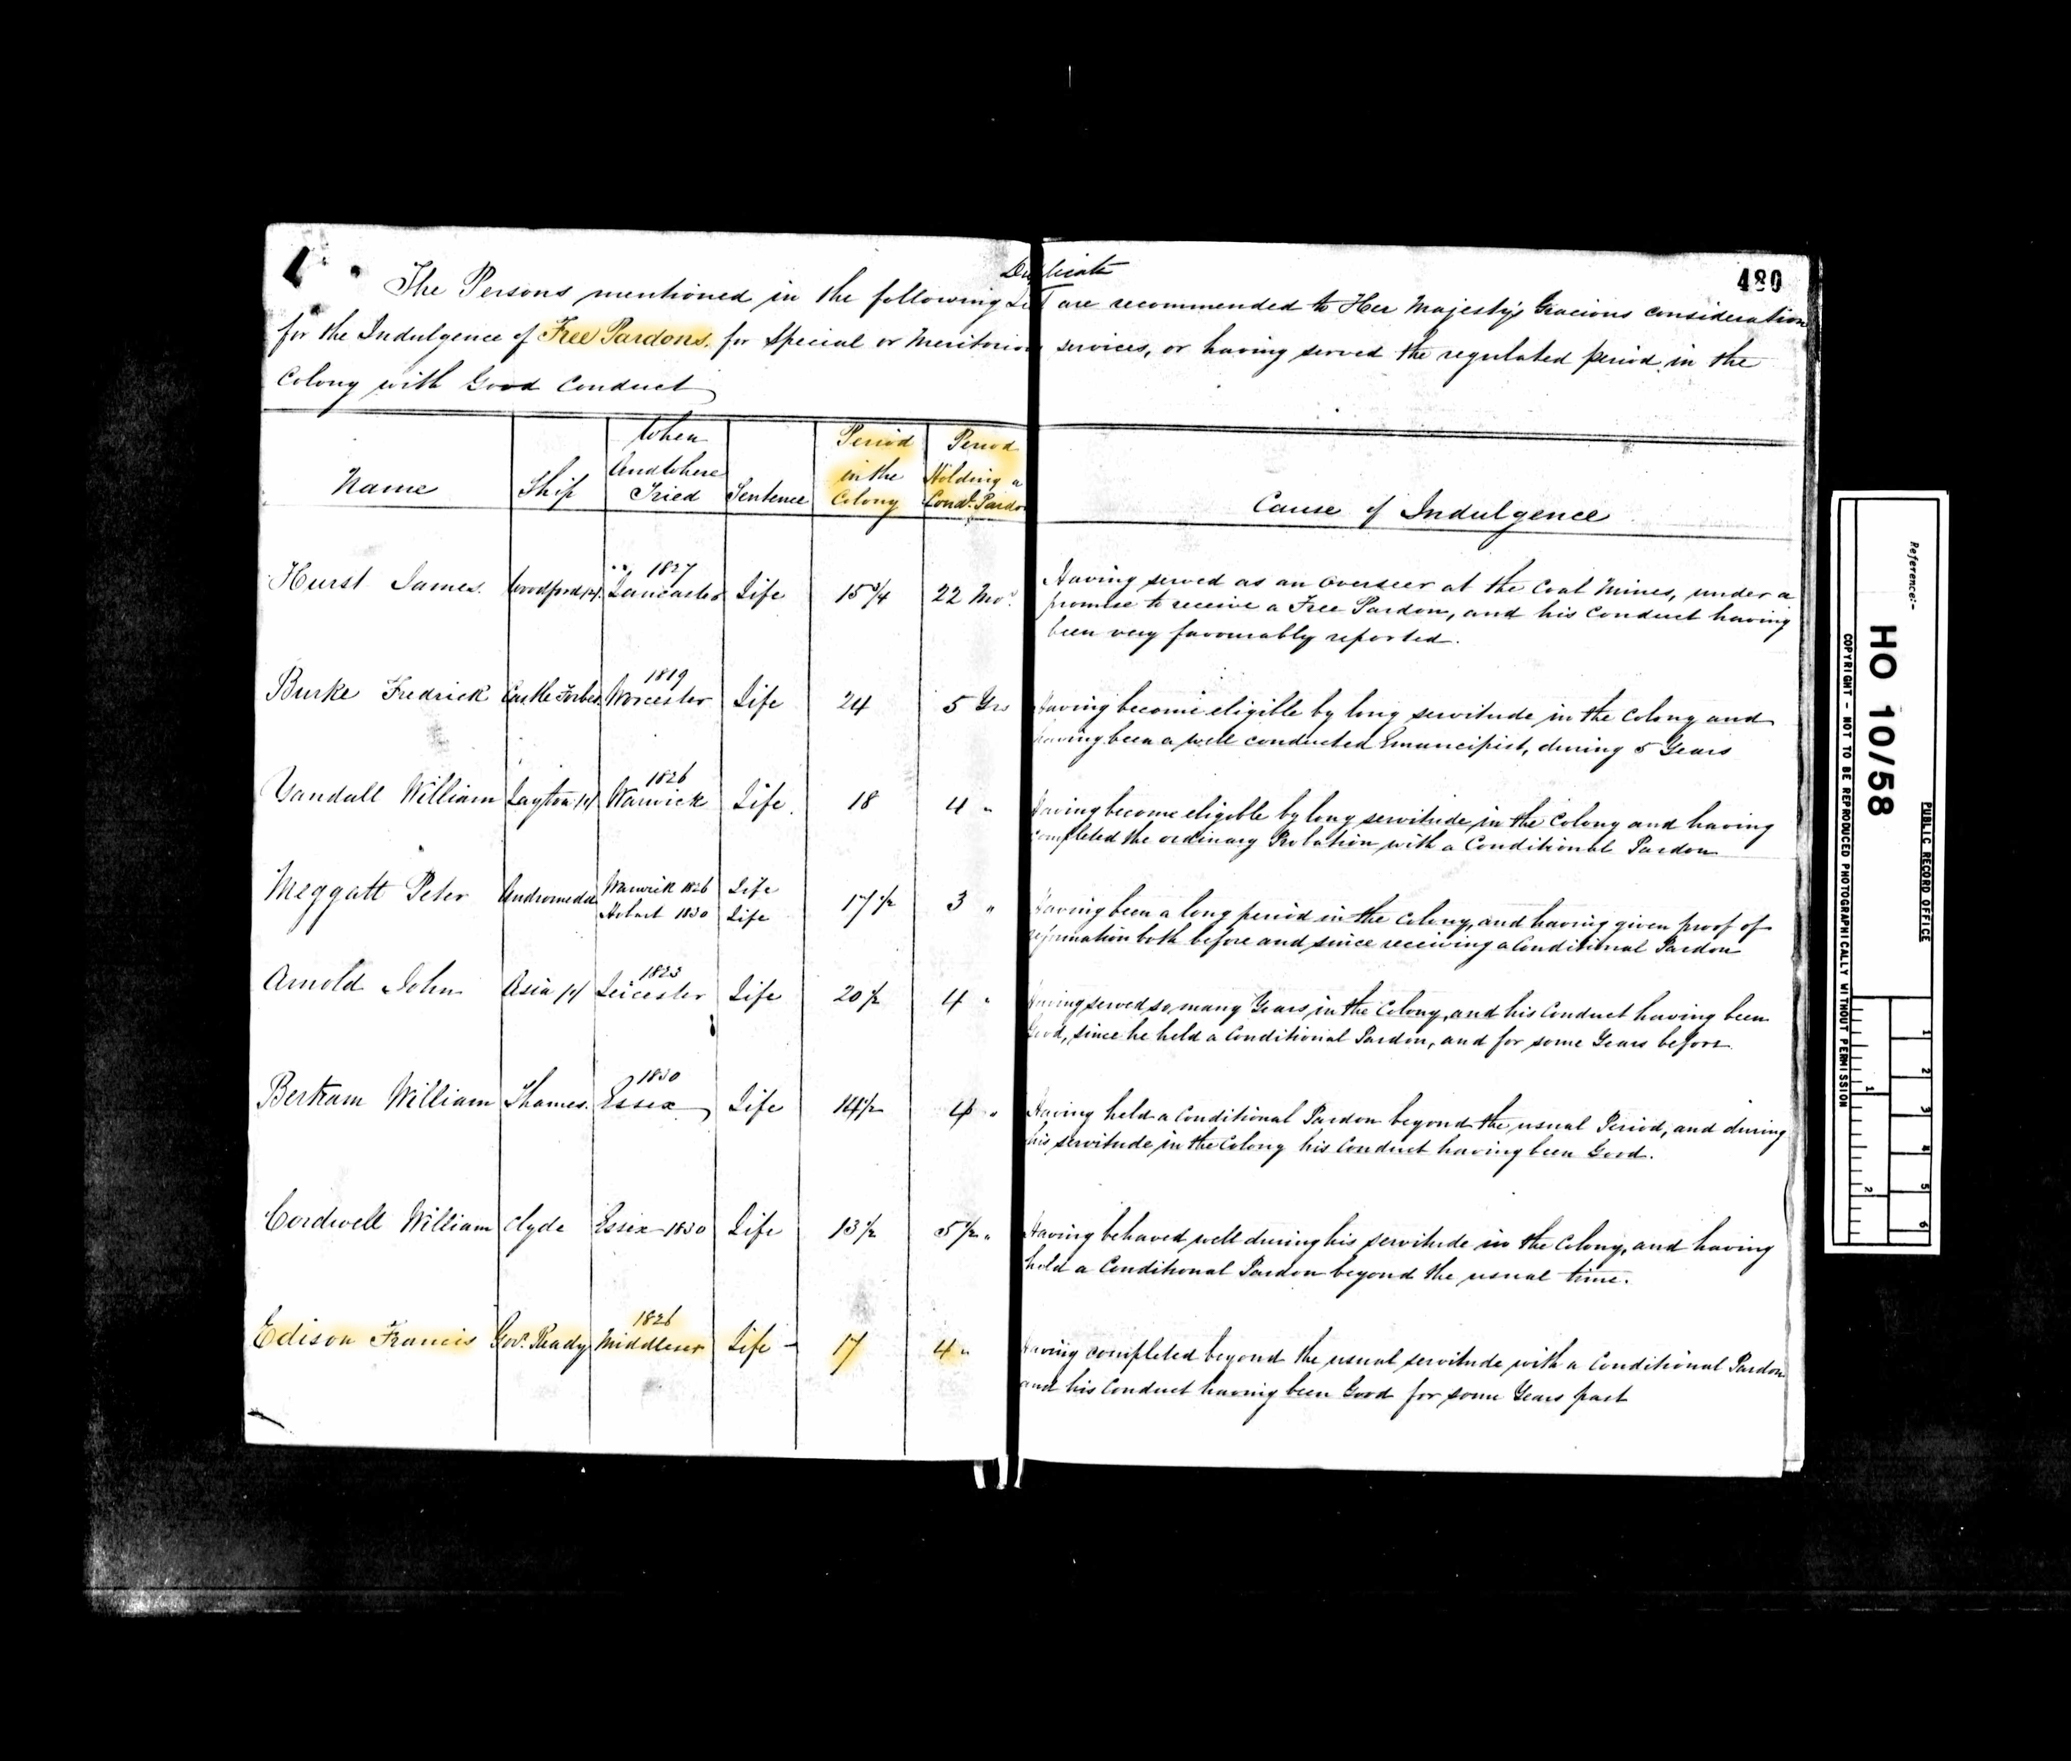 Duplicate
480
The Persons mentioned in the following List are recommended to Her Majesty's Gracious consideration
for the Indulgence of Free Pardons, for Special or Meritorious services, or having served the regulated period in the
Colony with Good Conduct
Name
Ship
When
And Where
Tried
Sentence
Period
in the
Colony
Period
Holding a
Condl. Pardon
Cause of Indulgence
Hurst James. Woodford 1827 Lancaster Life 15 3/4 22 Mos.
Having served as an Overseer at the Coal Mines, under a
promise to receive a Free Pardon, and his Conduct having
been very favourably reported.
Burke Fredrick Castle Forbes 1819 Worcester Life 24 5 Yrs
Having become eligible by long servitude in the Colony and
having been a well conducted Emancipist, during 5 Years
Yandall William Layton 1826 Warwick Life. 18 4 "
Having become eligible by long servitude in the Colony and having
completed the ordinary Probation with a Conditional Pardon
Meggatt Peter Andromeda Warwick 1826 Life
Hobart 1830 Life
17 1/2 3 "
Having been a long period in the Colony, and having given proof of
reformation both before and since receiving a Conditional Pardon
Arnold John Asia 1823 Leicester Life 20 1/2 4 "
Having served so many Years in the Colony, and his Conduct having been
Good, since he held a Conditional Pardon, and for some Years before.
Bertram William Thames. 1830 Essex Life 14 1/2 4 "
Having held a Conditional Pardon beyond the usual Period, and during
his servitude in the Colony his Conduct having been Good.
Cordwell William Clyde Essex 1830 Life 13 1/2 5 1/2 "
Having behaved well during his servitude in the Colony, and having
held a Conditional Pardon beyond the usual time.
Edison Francis Govr. Ready 1826 Middlesex Life - 17 4 "
Having completed beyond the usual servitude with a Conditional Pardon
and his Conduct having been Good for some Years past
PUBLIC RECORD OFFICE
Reference:-
HO 10/58
COPYRIGHT - NOT TO BE REPRODUCED PHOTOGRAPHICALLY WITHOUT PERMISSION
1 2 3 4 5 6
1 2